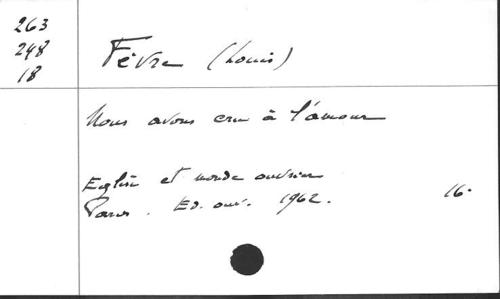 263
248
18
Fèvre (Louis)
Nous avons cru à l'amour
Eglise et monde ouvrier
Paris. Ed. ouv. 1962. 16.